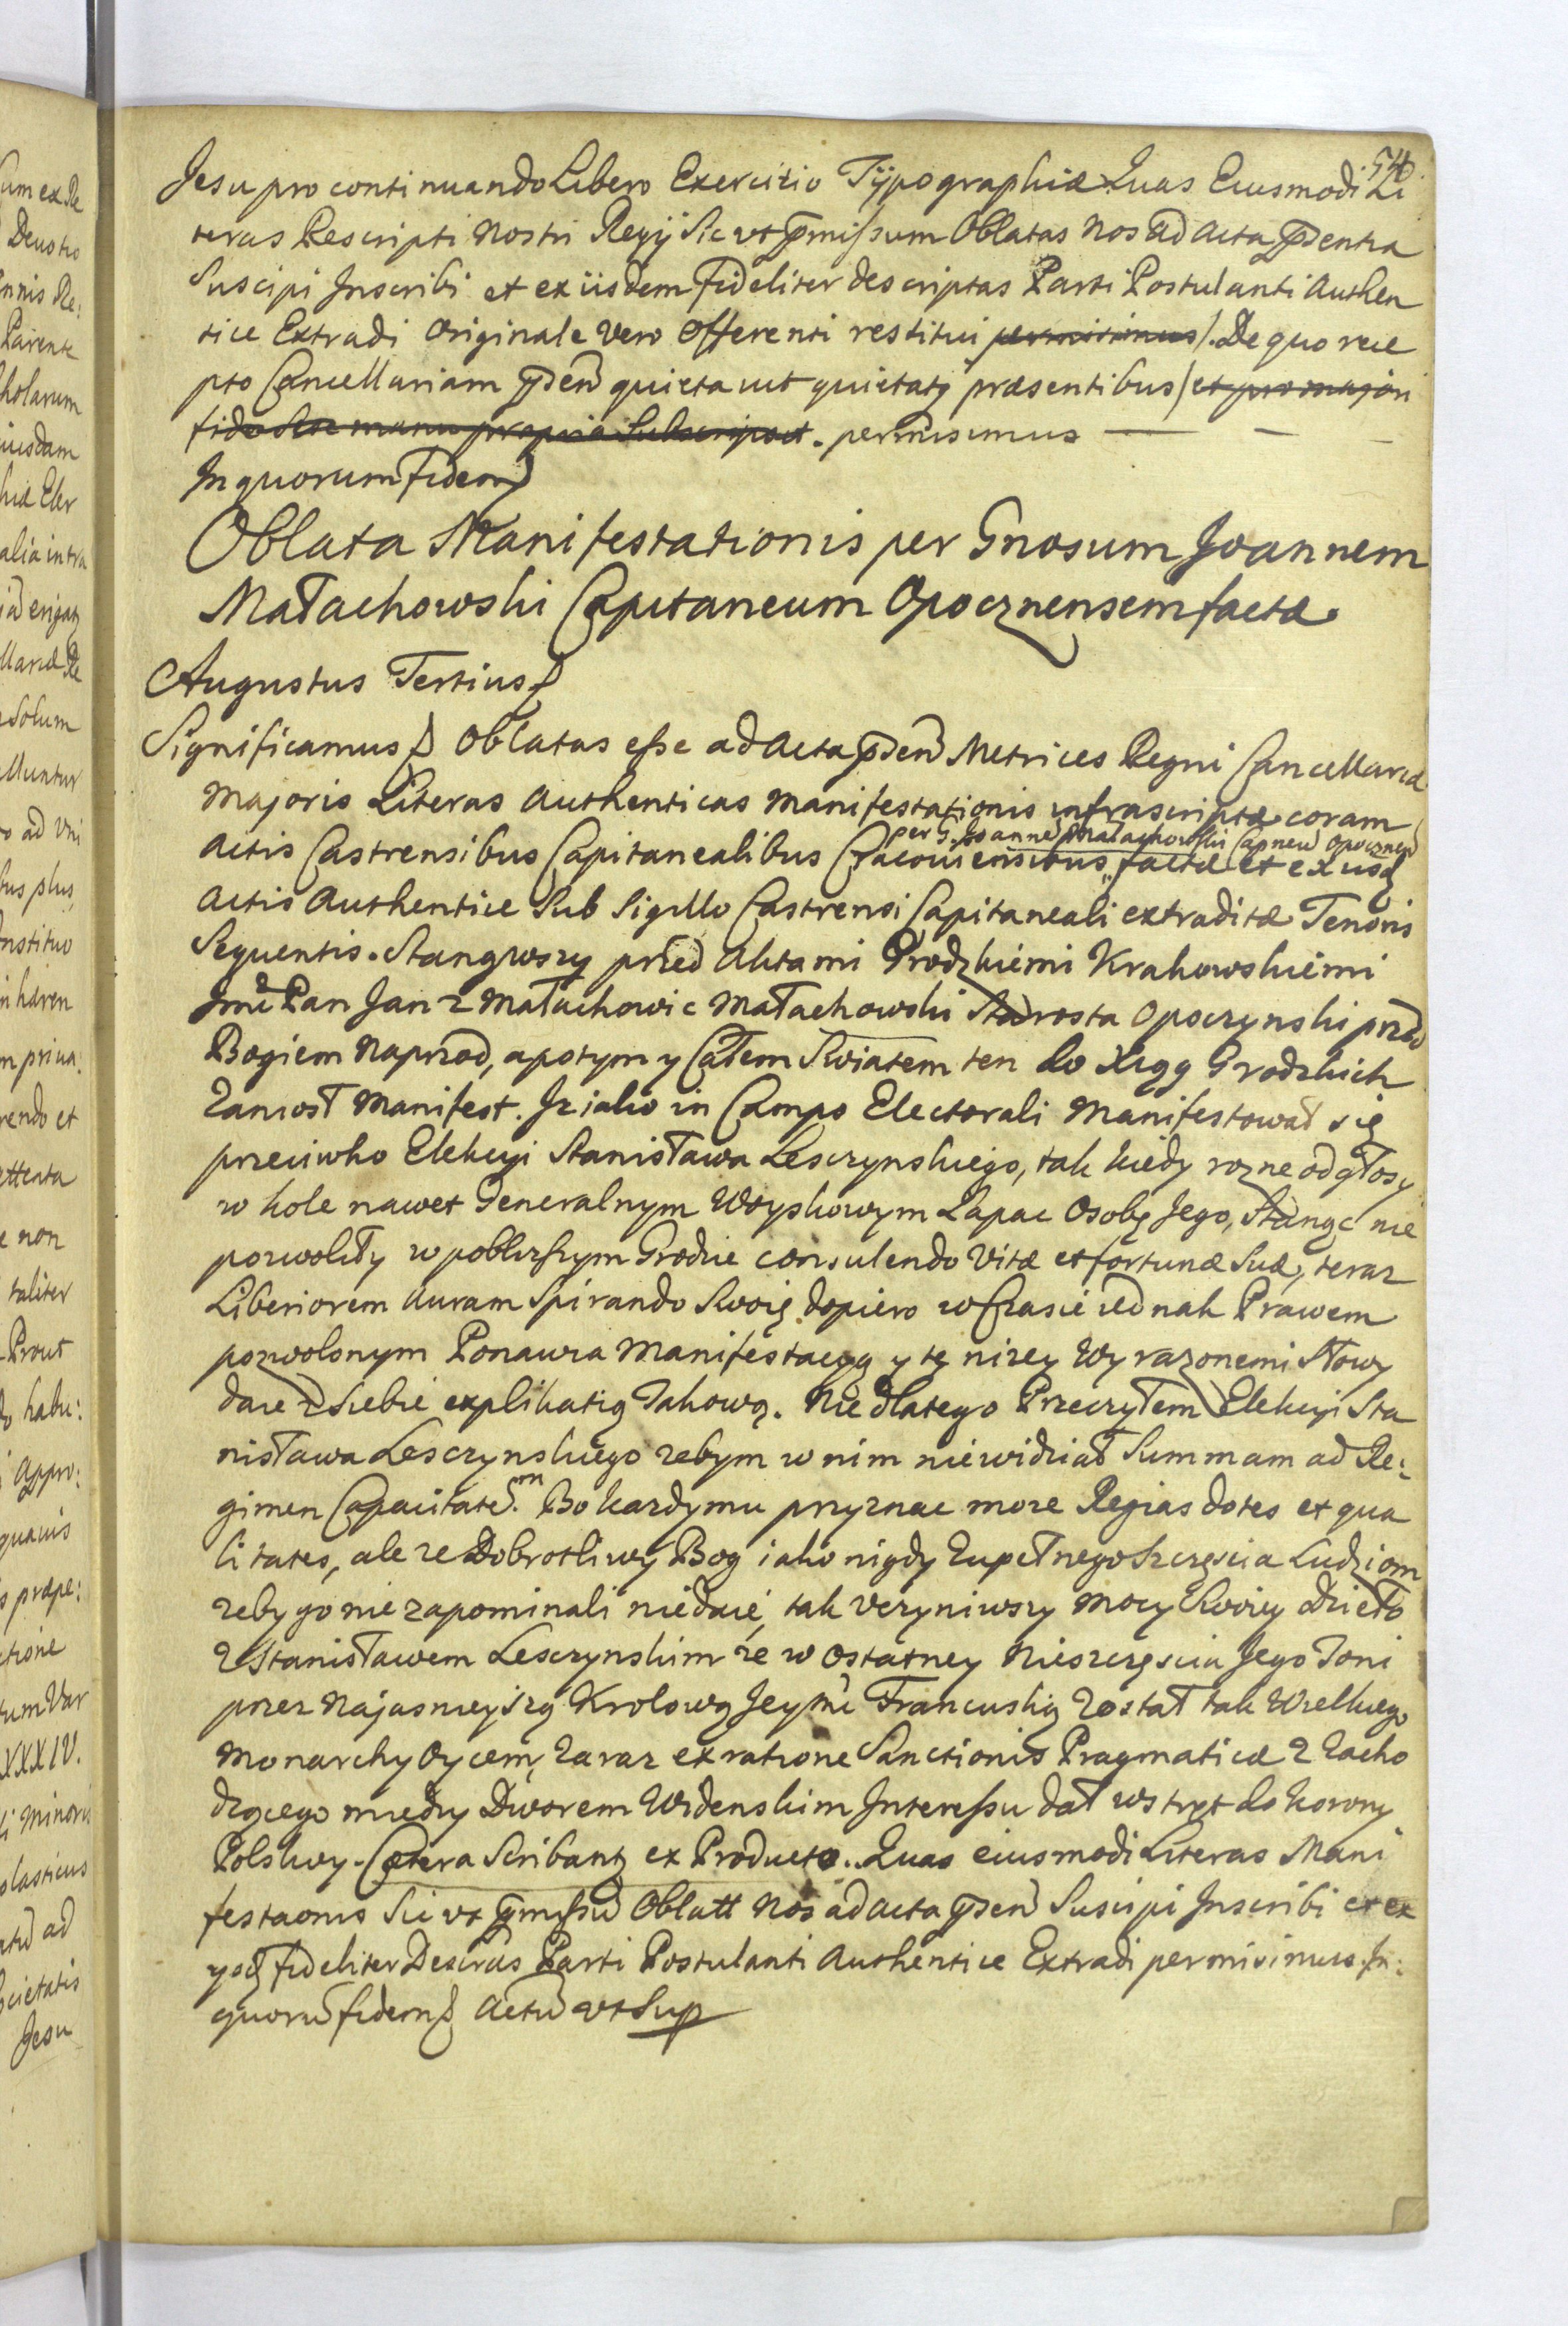 54
Jesu pro continuando Libero Exercitio Typographiæ Quas Eiusmodi Li
teras Rescripti Nostri Regij Sic ut pmissum Oblatas Nos ad Acta psentia
Suscipi Inscribi et ex iisdem fideliter descriptas Parti Postulanti Authen
tice Extradi Originale Vero Offerenti restitui permisimus /. De quo rece
pto Cancellariam psen quietavit quietatq præsentibus / et pro majori
fide Se manu propria Subscripsit. permisimus
In quorum Fidem
Oblata Manifestationis per Gnosum Joannem
Małachowski Capitaneum Opocznensem factæ
Augustus Tertius
Significamus Oblatas esse ad Acta psen Metrices Regni Cancellariæ
Majoris Literas Authenticas Manifestationis infrascriptæ coram
per G. Joanne Małachowski Capneu Opocznen
Actis Castrensibus Capitanealibus Cracoviensibus factæ et ex iisd
Actis Authentice Sub Sigillo Castrensi Capitaneali extraditæ Tenoris
Sequentis. Stanąwszy przed Aktami Grodzkiemi Krakowskiemi
Jmc Pan Jan z Małachowic Małachowski Starosta Opoczynski przed
Bogiem Naprzod, a potym y Całem Swiatem ten do Xiąg Grodzkich
Zaniosł Manifest. Iz iako in Campo Electorali Manifestował się
przeciwko Elekcyi Stanisława Lesczynskiego, tak kiedy rozne odgłosy
w kole nawet Generalnym Woyskowym Łapac Osobę Jego, Stanąc nie
pozwoliły w poblizszym Grodzie consulendo Vitæ et fortunæ Suæ, teraz
Liberiorem Auram Spirando Swoię dopiero w Czasie iednak Prawem
pozwolonym Ponawia Manifestacyą y tę nizey Wyrazonemi Słowy
daie z Siebie explikatią Takową. Nie dlatego Przeczyłem Elekcyi Sta
nisława Lesczynskiego zebym w nim niewidział Summam ad Re:
gimen Capacitatem. Bo kazdymu przyznac moze Regias dotes et qua
litates, ale ze Dobrotliwy Bog iako nigdy Zupełnego Szczęscia Ludziom
zeby go nie zapominali niedaie, tak Uczyniwszy Mocy Swoiey dzieło
z Stanisławem Lesczynskim ze w Ostatney Nieszczęscia Jego Toni
przez Najasnieyszą Krolową Jeymc Francuską Został tak Wielkiego
Monarchy Oycem, Zaraz ex ratione Sanctionis Pragmaticæ z Zacho
dzącego między Dworem Widenskim Interessu dał wstręt do Korony
Polskiey. Cætera Scribantq ex Producto. Quas eiusmodi Literas Mani
festaonis Sic ut pmissu Oblatt Nos ad Acta psen Suscipi Inscribi et ex
ysd fideliter Descrias Parti Postulanti Authentice Extradi permisimus. In:
quoru fidem Actu ut Sup